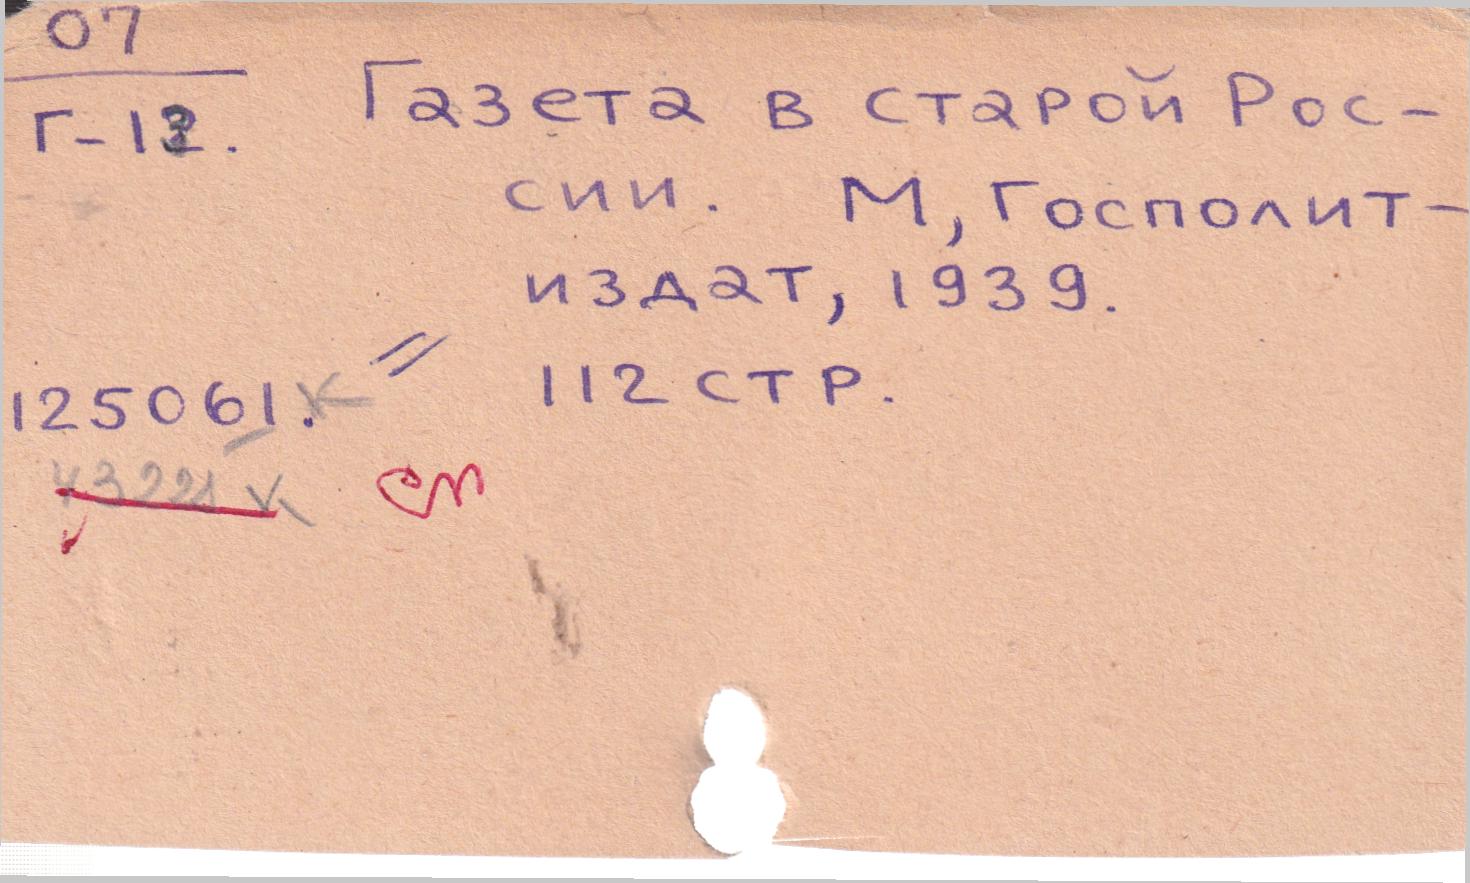 07
Г-13.
Газета в старой Рос-
сии. М, Госполит-
издат, 1939.
112 стр.
125061. К
43221 К